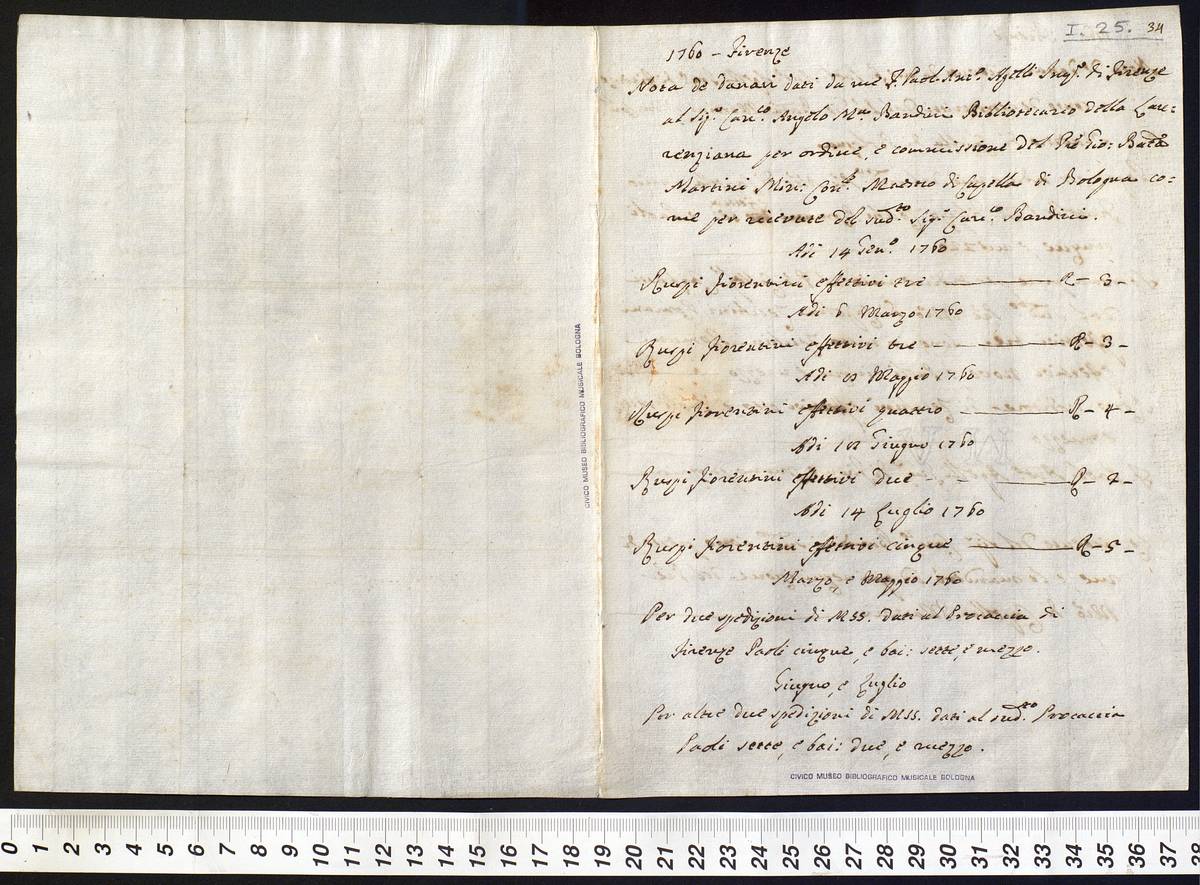 I. 25. 34
1760 - Firenze
Nota de danari dati da me F. Paol Ant.º Agelli Inq.r di Firenze
al Sig.r Can.co Angelo M.a Bandini Bibliotecario della Lau=
renziana per ordine, e commissione del Pre Gio: Batta
Martini Min: Con.le Maestro di Capella di Bologna co=
me per ricevute del sud.to Sig.r Can.co Bandini.
Adi 14 Gen.o 1760
Ruspi fiorentini effettivi tre R - 3 -
Adi 6 Marzo 1760
Ruspi fiorentini effettivi tre R - 3 -
Adi Maggio 1760
Ruspi fiorentini effettivi quattro R - 4 -
Adi Giugno 1760
Ruspi fiorentini effettivi due R - 2 -
Adi 14 Luglio 1760
Ruspi fiorentini effettivi cinque R - 5 -
Marzo, e Maggio 1760
Per due spedizioni di MSS. dati al Procaccia di
Firenze Paoli cinque, e bai: sette, e mezzo.
Giugno, e Luglio
Per altre due spedizioni di MSS. dati al sud.to Procaccia
Paoli sette, e bai: due, e mezzo.
CIVICO MUSEO BIBLIOGRAFICO MUSICALE BOLOGNA
CIVICO MUSEO BIBLIOGRAFICO MUSICALE BOLOGNA
0 1 2 3 4 5 6 7 8 9 10 11 12 13 14 15 16 17 18 19 20 21 22 23 24 25 26 27 28 29 30 31 32 33 34 35 36 37 38